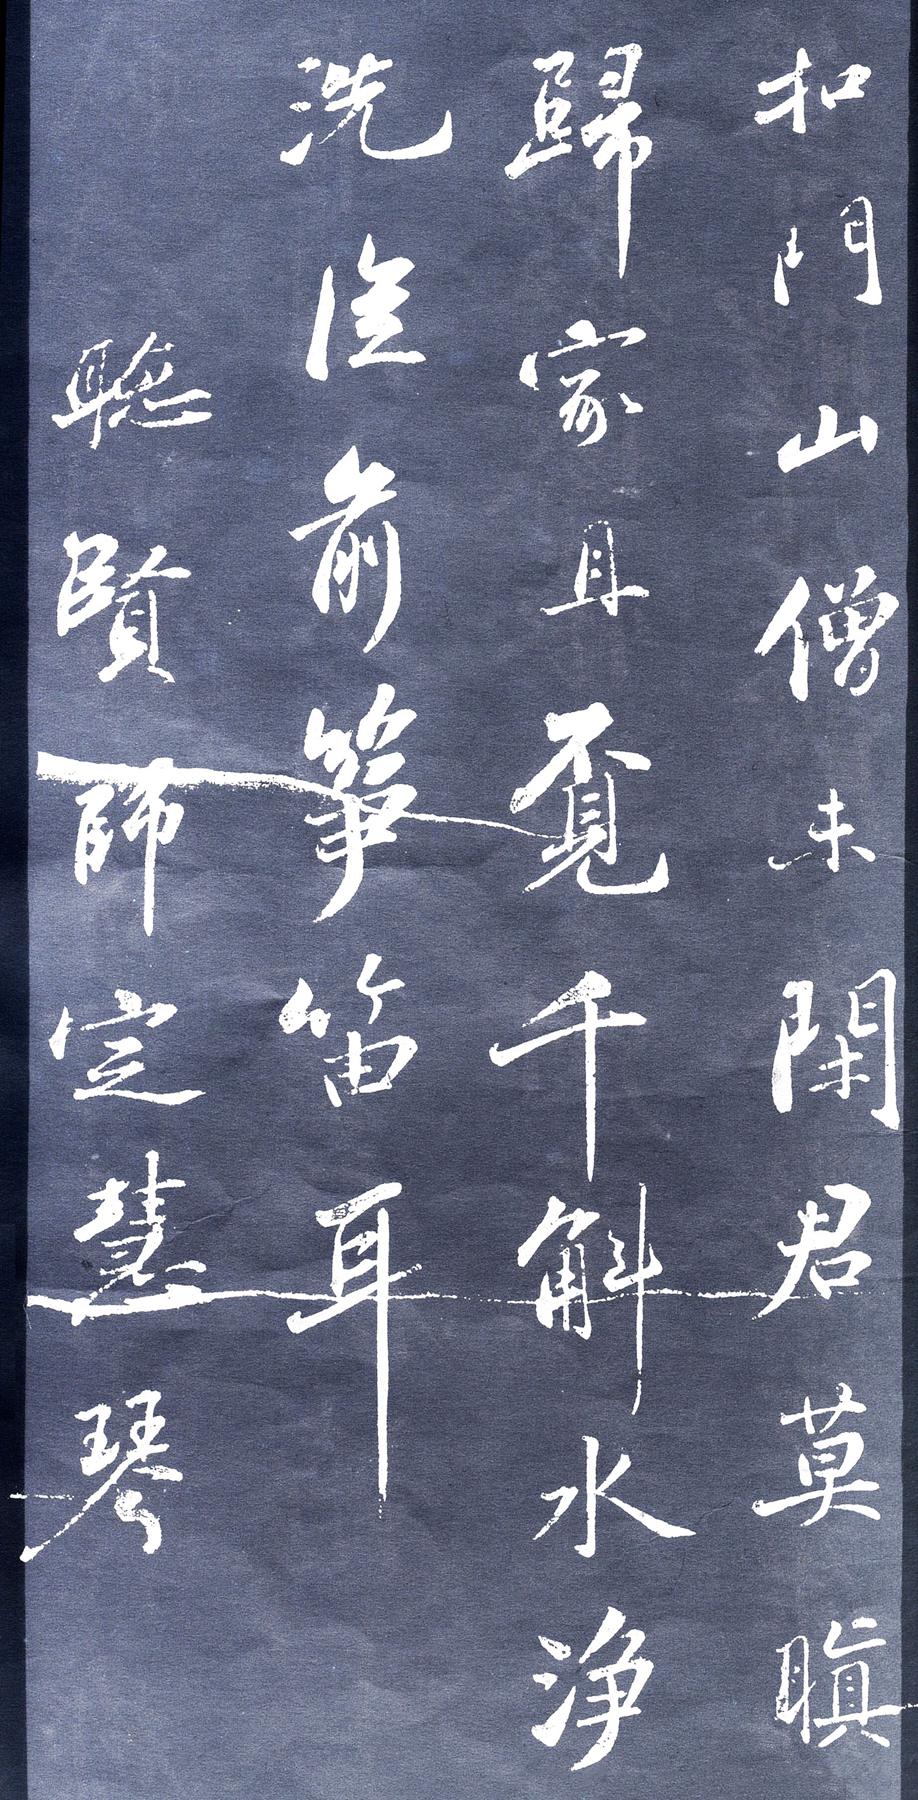 扣門山僧未閑君莫瞋
歸家且覔千斛水淨
洗從前箏笛耳
聽賢師定慧琴